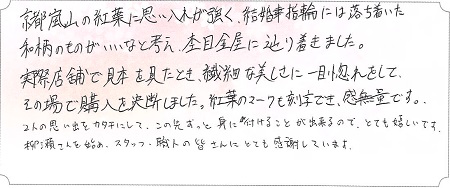 京都嵐山の紅葉に思い入れが強く、結婚指輪には落ち着いた
和柄のものがいいなと考え、杢目金屋に辿り着きました。
実際店舗で見本を見たとき、繊細な美しさに一目惚れをして、
その場で購入を決断しました。紅葉のマークも刻字でき、感無量です。
2人の思い出をカタチにして、この先ずっと身に付けることが出来るので、とても嬉しいです。
柳瀬さんを始め、スタッフ・職人の皆さんにとても感謝しています。